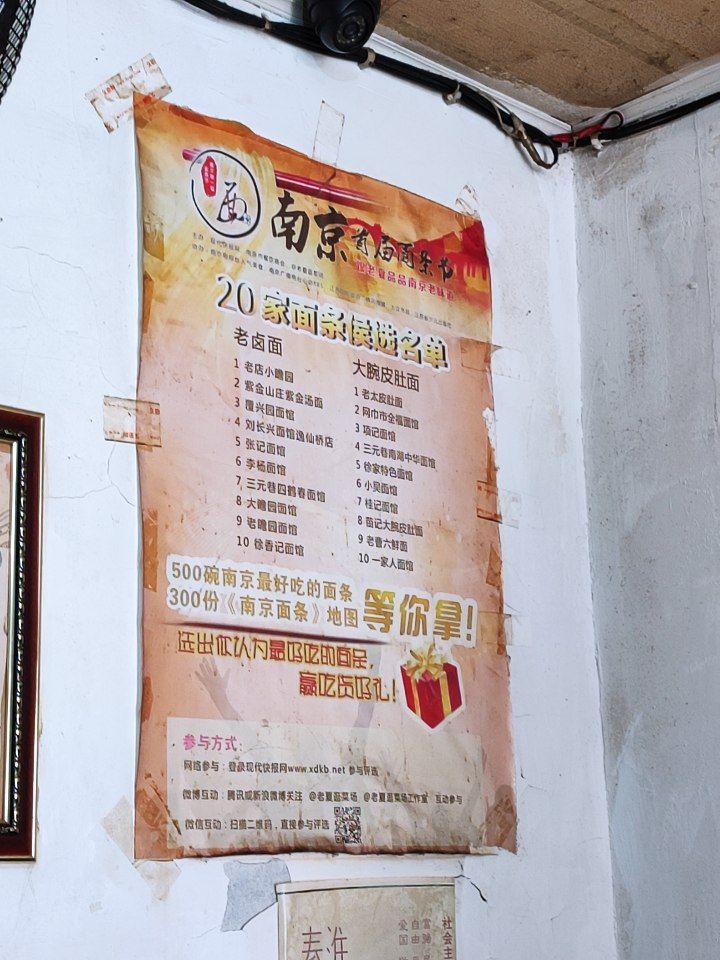 面
南京首届面条节
跟老夏品品南京老味道
20家面条候选名单
老卤面
1 老店小瞻园
2 紫金山庄紫金汤面
3 覆兴园面馆
4 刘长兴面馆逸仙桥店
5 张记面馆
6 李杨面馆
7 三元巷四鹤春面馆
8 大瞻园面馆
9 老瞻园面馆
10 徐香记面馆
大腕皮肚面
1 老太皮肚面
2 网巾市全福面馆
3 项记面馆
4 三元巷南湖中华面馆
5 徐家特色面馆
6 小吴面馆
7 桂记面馆
8 苗记大腕皮肚面
9 老曹六鲜面
10 一家人面馆
500碗南京最好吃的面条
300份《南京面条》地图
等你拿！
选出你认为最好吃的面条，
赢吃货好礼！
参与方式：
网络参与：登录现代快报网www.xdkb.net 参与评选
微博互动：腾讯或新浪微博关注 @老夏逛菜场 @老夏逛菜场工作室 互动参与
微信互动：扫描二维码，直接参与评选
社会主
富强
自由
爱国